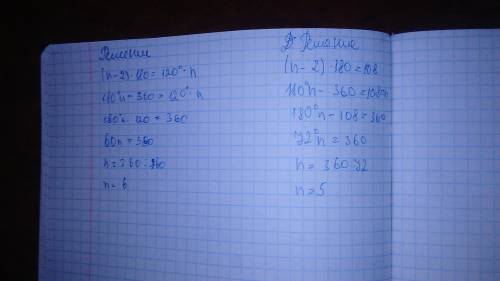 Решение
(n-2)·180=120°·n
180°n-360=120°·n
180°n-120=360
60n=360
n=360:360
n=6
Решение
(n-2)·180=108
180°n-360=108°n
180°n-108=360
72°n=360
n=360:72
n=5